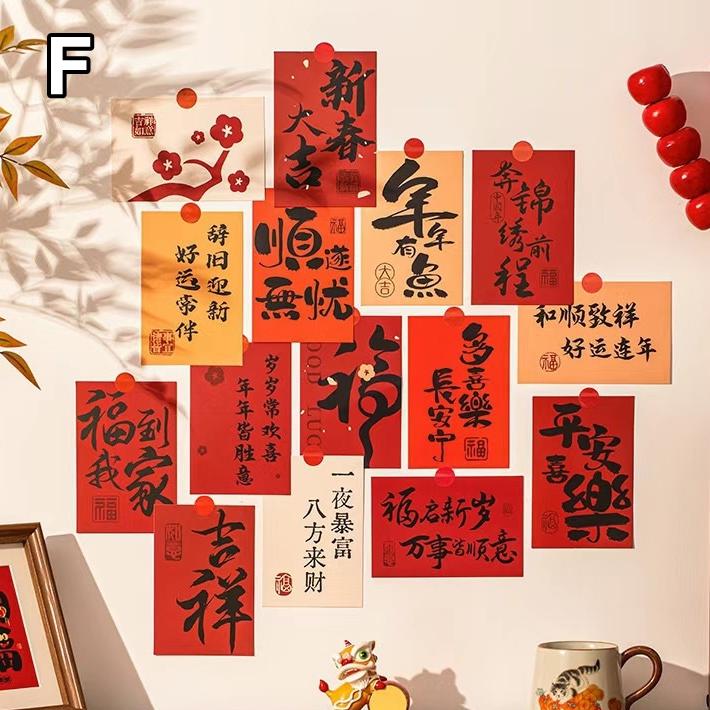 F
吉祥
如意
新春
大吉
辞旧迎新
好运常伴
順遂
無忧
福
年年
有魚
大吉
奔
錦绣
前程
福
和顺致祥
好运连年
福
岁岁常欢喜
年年皆胜意
GOOD LUCK
福
多喜樂
長安宁
福
平安
喜樂
福到
我家
福
吉祥
一夜暴富
八方来财
福
福启新岁
万事皆顺意